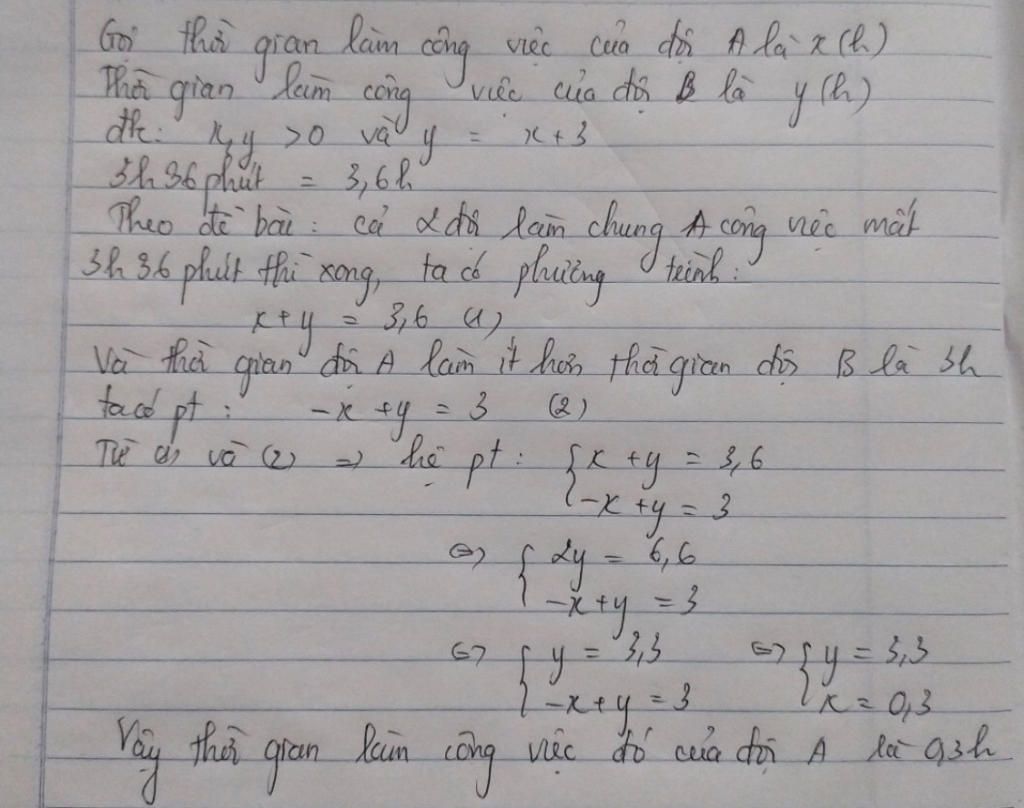 Gọi thời gian làm công việc của đội A là x (h)
Thời gian làm công việc của đội B là y (h)
đk: x, y > 0 và y = x + 3
3h 36 phút = 3,6h
Theo đề bài: cả 2 đội làm chung 1 công việc mất
3h 36 phút thì xong, ta có phương trình:
x + y = 3,6 (1)
Và thời gian đội A làm ít hơn thời gian đội B là 3h
ta có pt: -x + y = 3 (2)
Từ (1) và (2) => hệ pt: { x + y = 3,6
-x + y = 3
<=> { 2y = 6,6
-x + y = 3
<=> { y = 3,3 <=> { y = 3,3
-x + y = 3 x = 0,3
Vậy thời gian làm công việc đó của đội A là 0,3h